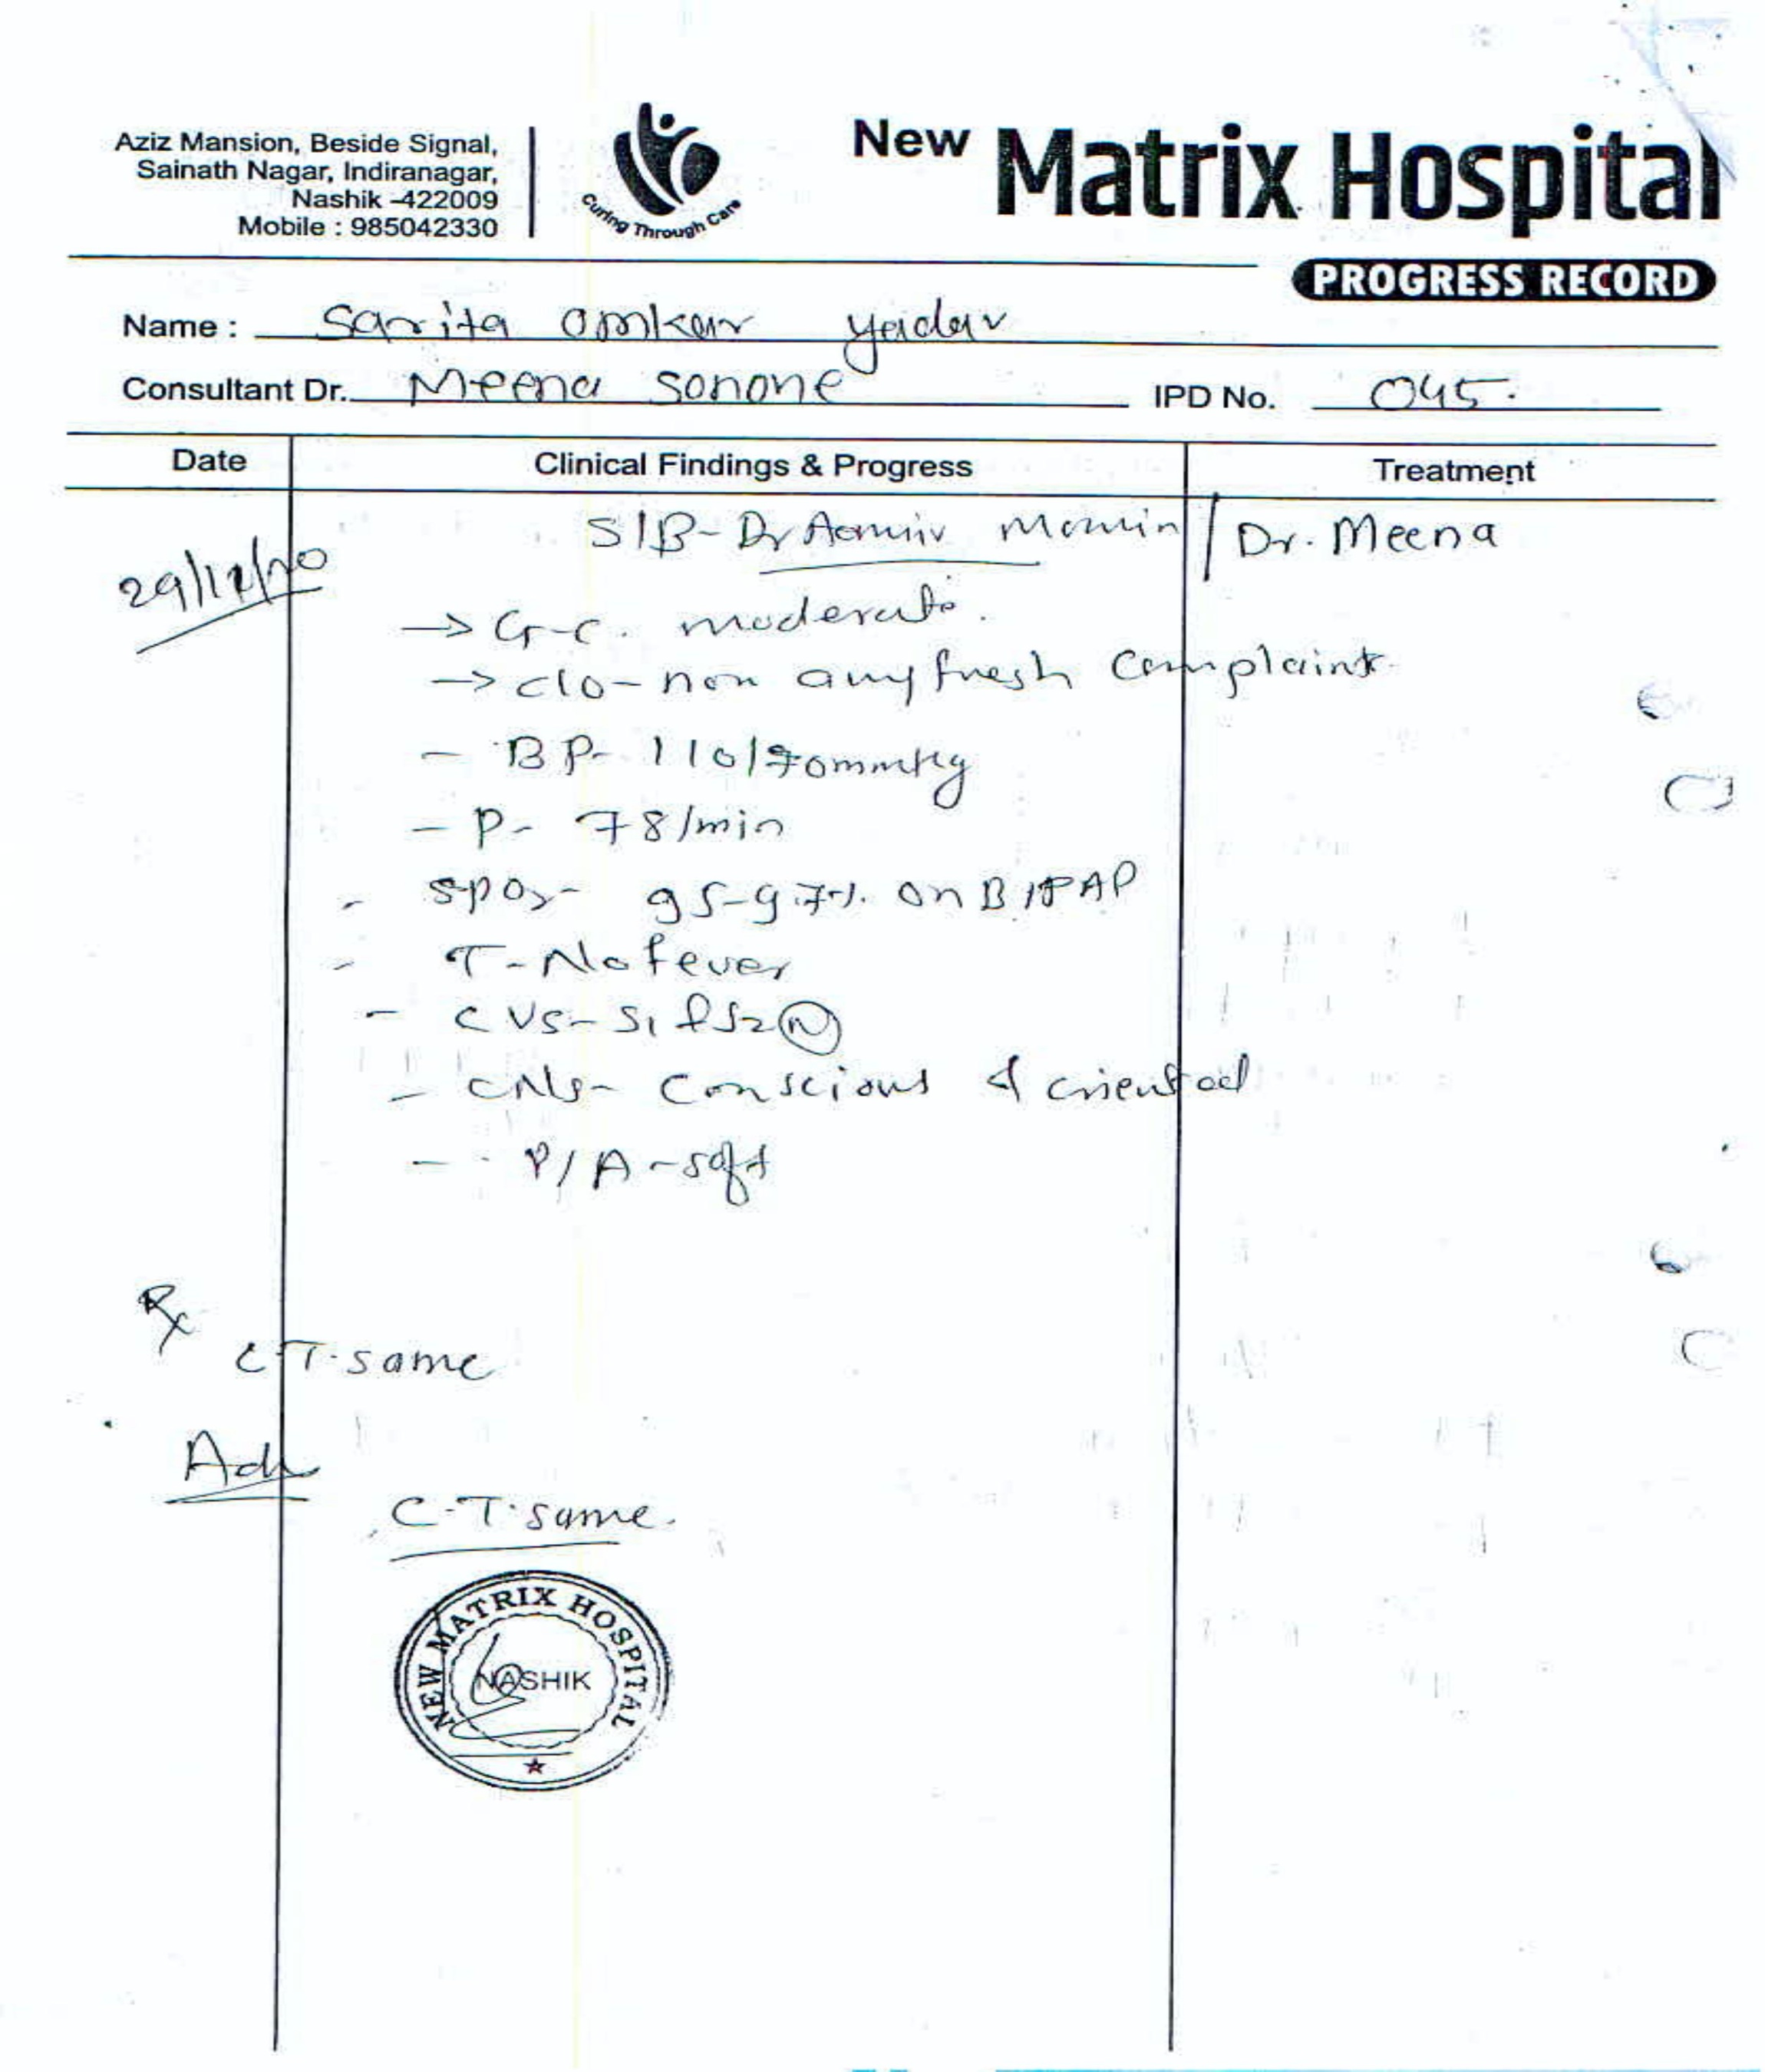 Aziz Mansion, Beside Signal,
Sainath Nagar, Indiranagar,
Nashik -422009
Mobile : 985042330
Curing Through Care
New Matrix Hospital
PROGRESS RECORD
Name : Sarita Omkar Yadav
Consultant Dr. Meena Sonone IPD No. 045.
Date Clinical Findings & Progress Treatment
S/B - Dr Momin / Dr. Meena
29/12/20
→ G-C. moderate.
→ c/o - non any fresh complaint.
- BP- 110/70mmHg
- P- 78/min
- SPO2- 95-97% on BIPAP
- T- No fever
- CVS- S1 & S2 (N)
- CNS- Conscious & oriented
- P/A - soft
Rx
C T. same
Adv
C-T. same.
NEW MATRIX HOSPITAL
NASHIK